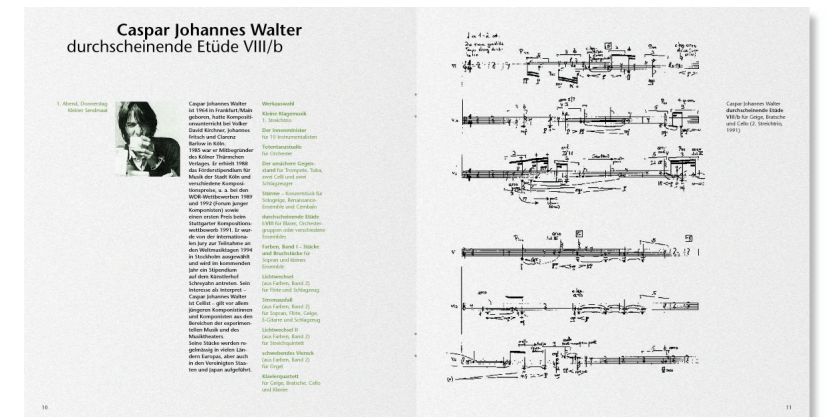 Caspar Johannes Walter
durchscheinende Etüde VIII/b
1. Abend, Donnerstag
Kleiner Sendesaal
Caspar Johannes Walter
ist 1964 in Frankfurt/Main
geboren, hatte Kompositi-
onsunterricht bei Volker
David Kirchner, Johannes
Fritsch und Clarenz
Barlow in Köln.
1985 war er Mitbegründer
des Kölner Thürmchen
Verlages. Er erhielt 1988
das Förderstipendium für
Musik der Stadt Köln und
verschiedene Komposi-
tionspreise, u. a. bei den
WDR-Wettbewerben 1989
und 1992 (Forum junger
Komponisten) sowie
einen ersten Preis beim
Stuttgarter Kompositions-
wettbewerb 1991. Er wur-
de von der internationa-
len Jury zur Teilnahme an
den Weltmusiktagen 1994
in Stockholm ausgewählt
und wird im kommenden
Jahr ein Stipendium
auf dem Künstlerhof
Schreyahn antreten. Sein
Interesse als Interpret –
Caspar Johannes Walter
ist Cellist – gilt vor allem
jüngeren Komponistinnen
und Komponisten aus den
Bereichen der experimen-
tellen Musik und des
Musiktheaters.
Seine Stücke werden re-
gelmässig in vielen Län-
dern Europas, aber auch
in den Vereinigten Staa-
ten und Japan aufgeführt.
Werkauswahl
Kleine Klagemusik
1. Streichtrio
Der Innenminister
für 10 Instrumentalisten
Totentanzstudie
für Orchester
Der unsichere Gegen-
stand für Trompete, Tuba,
zwei Celli und zwei
Schlagzeuger
Stürme – Konzertstück für
Sologeige, Renaissance-
Ensemble und Cembalo
durchscheinende Etüde
I-VIII für Bläser, Orchester-
gruppen oder verschiedene
Ensembles
Farben, Band I – Stücke
und Bruchstücke für
Sopran und kleines
Ensemble
Lichtwechsel
(aus Farben, Band 2)
für Flöte und Schlagzeug
Stromausfall
(aus Farben, Band 2)
für Sopran, Flöte, Geige,
E-Gitarre und Schlagzeug
Lichtwechsel II
(aus Farben, Band 2)
für Streichquintett
schwebendes Vierteck
(aus Farben, Band 2)
für Orgel
Klavierquartett
für Geige, Bratsche, Cello
und Klavier
10
Caspar Johannes Walter
durchscheinende Etüde
VIII/b für Geige, Bratsche
und Cello (2. Streichtrio,
1991)
11